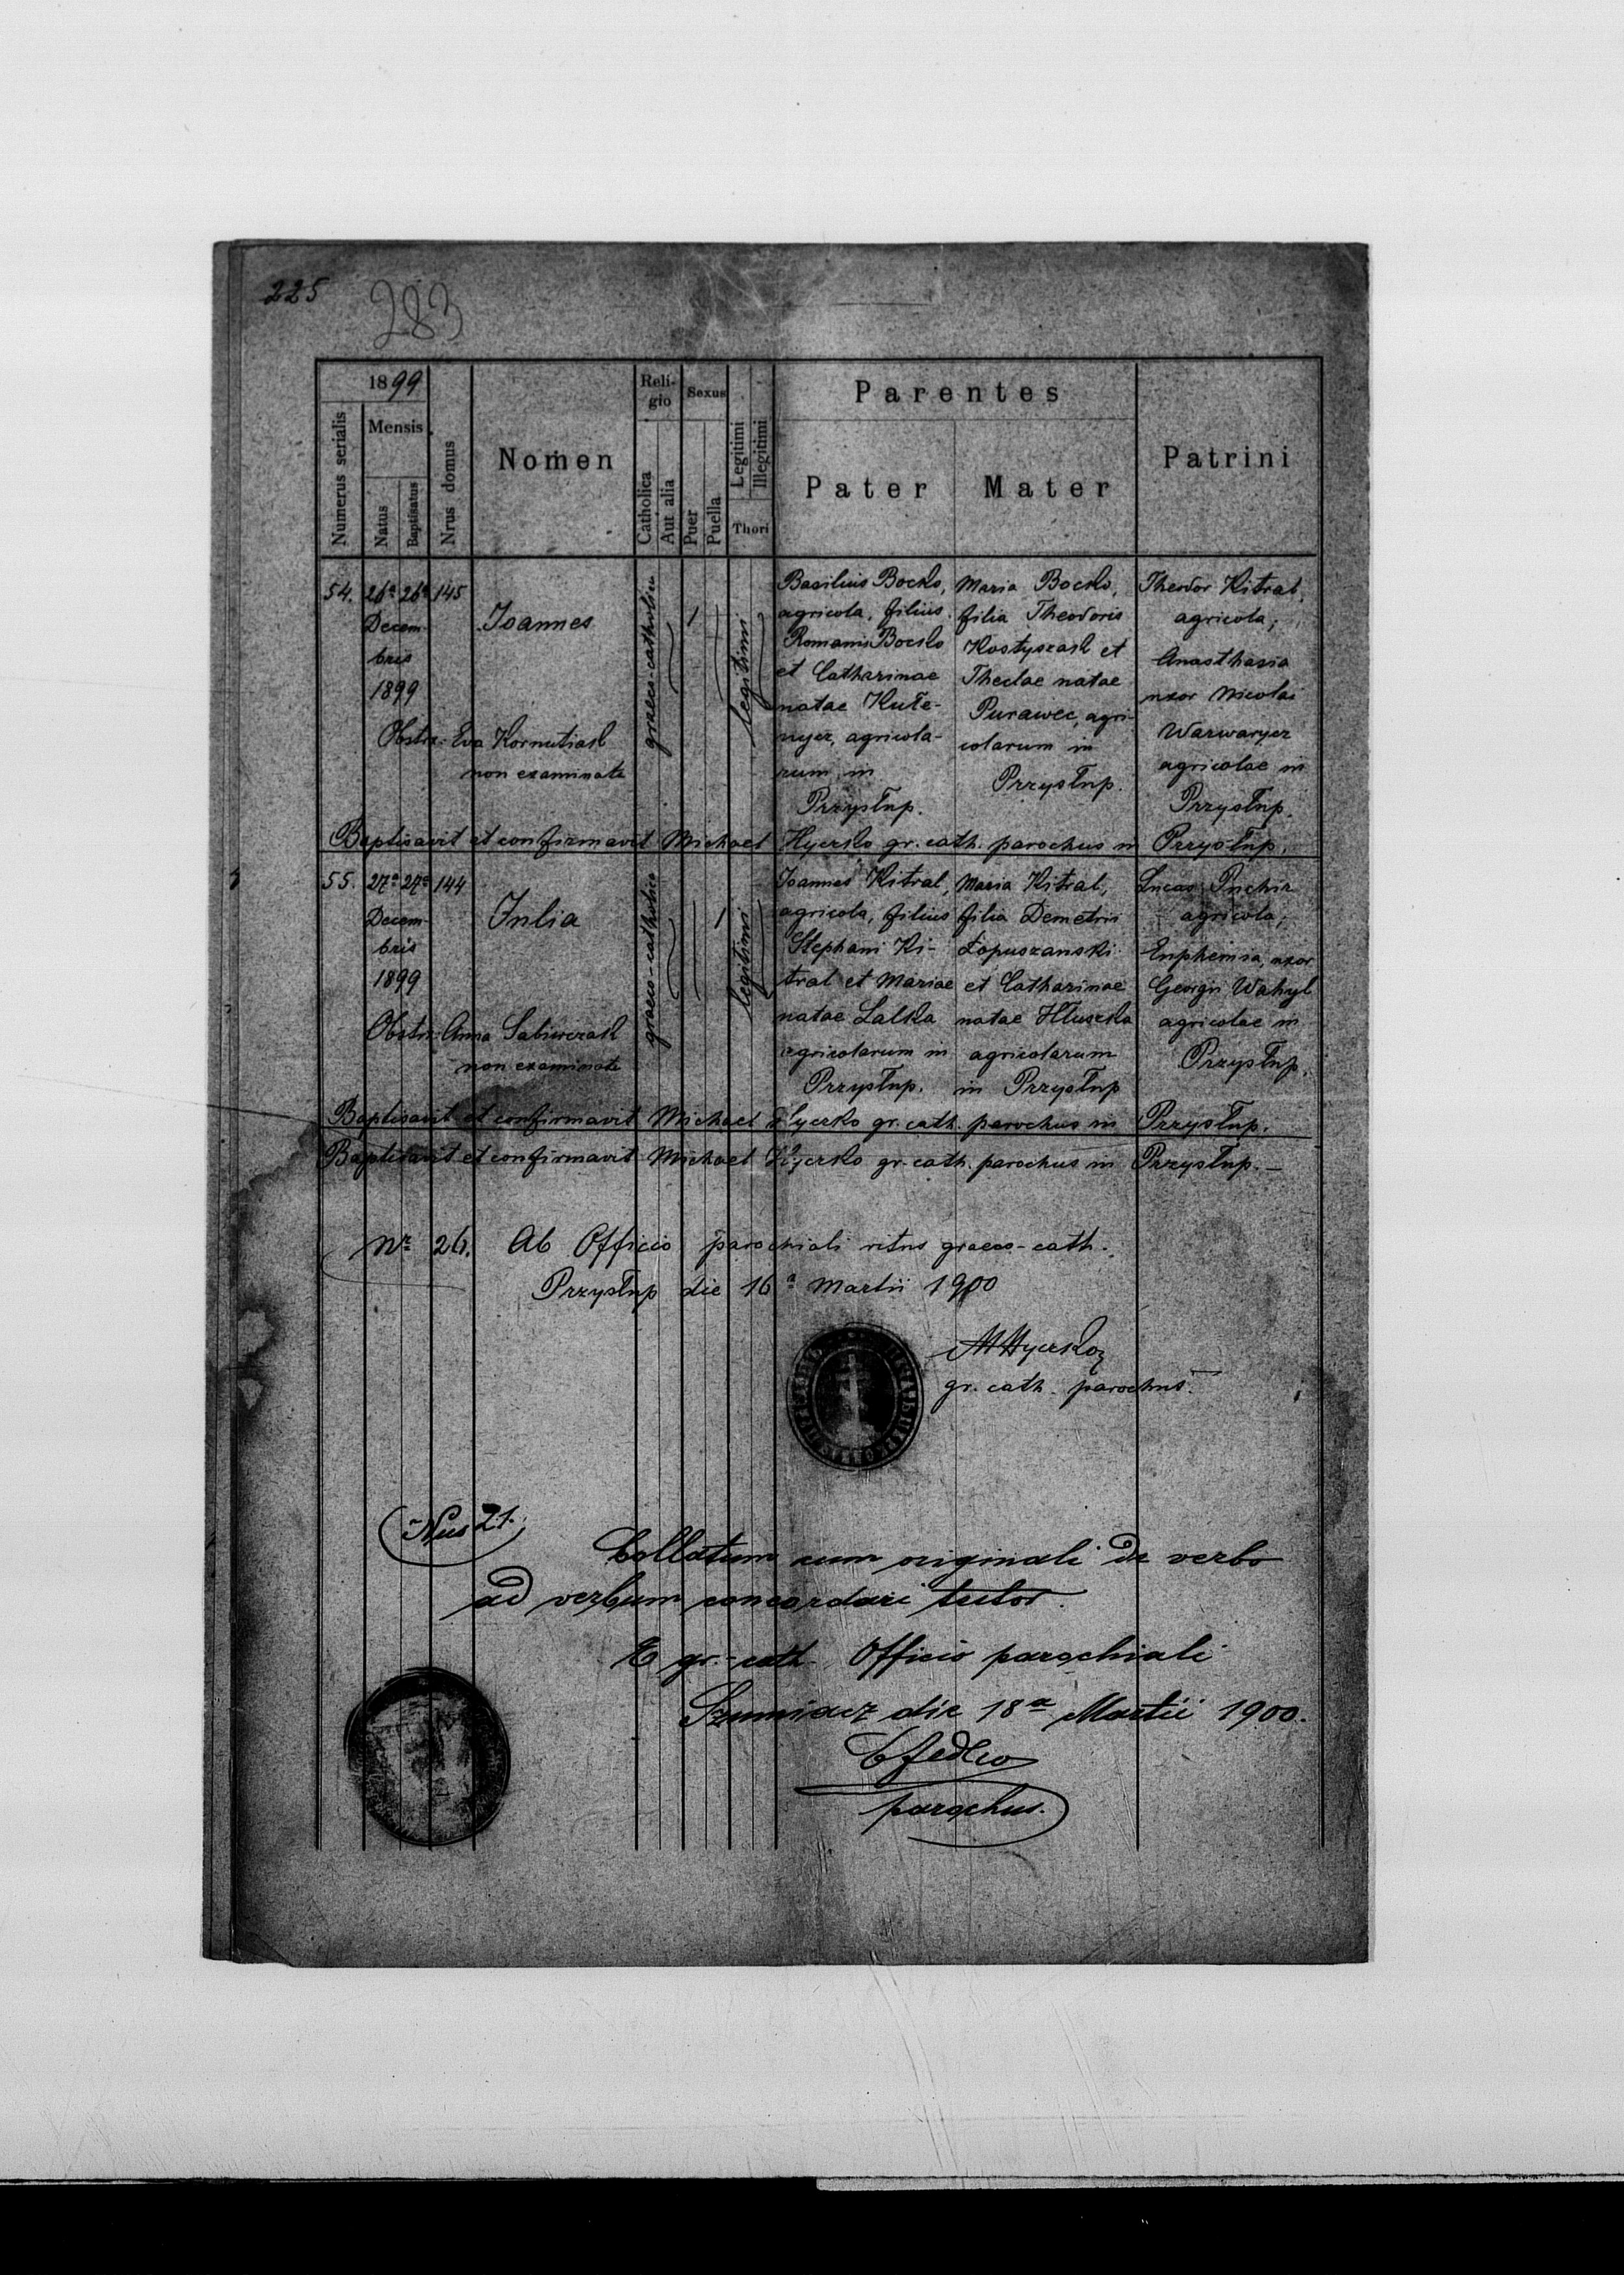 225
283
1899
Numerus serialis
Mensis
Natus
Baptisatus
Nrus domus
Nomen
Religio
Catholica
Aut alia
Sexus
Puer
Puella
Legitimi
Illegitimi
Thori
Parentes
Pater
Mater
Patrini
54. 26a 26a 145
Decem-
bris
1899
Joannes
Obstr. Eva Kornutiak
non examinata
graeco-catholica
1
legitimi
Basilius Bocko,
agricola, filius
Romani Bocko
et Catharinae
natae Kute-
nycz, agricola-
rum in
Przysłup.
Maria Bocko,
filia Theodoris
Kostyszak et
Theclae natae
Purawec, agri-
colarum in
Przysłup.
Theodor Kitral,
agricola;
Anasthasia
uxor Nicolai
Warwarycz
agricolae in
Przysłup.
Baptisavit et confirmavit Michael Hycrko gr. cath. parochus in Przysłup.
55. 27a 27a 144
Decem-
bris
1899
Julia
Obstr. Anna Saliwczak
non examinata
graeco-catholica
1
legitimi
Joannes Kitral,
agricola, filius
Stephani Ki-
tral et Mariae
natae Lalka
agricolarum in
Przysłup.
Maria Kitral,
filia Demetrii
Łopuszanski
et Catharinae
natae Hluszka
agricolarum
in Przysłup
Lucas Puchir
agricola;
Euphemia, uxor
Georgii Wahyl
agricolae in
Przysłup.
Baptisavit et confirmavit Michael Hycrko gr. cath. parochus in Przysłup.
Baptisavit et confirmavit Michael Hycrko gr. cath. parochus in Przysłup. —
Nr 26. Ab Officio parochiali ritus graeco-cath.
Przysłup die 16a Martii 1900
MHycrko
gr. cath. parochus.
Nus 21.
Collatum cum originali de verbo
ad verbum concordari testor.
E gr.-cath. Officio parochiali
Szumiacz die 18a Martii 1900.
parochus.